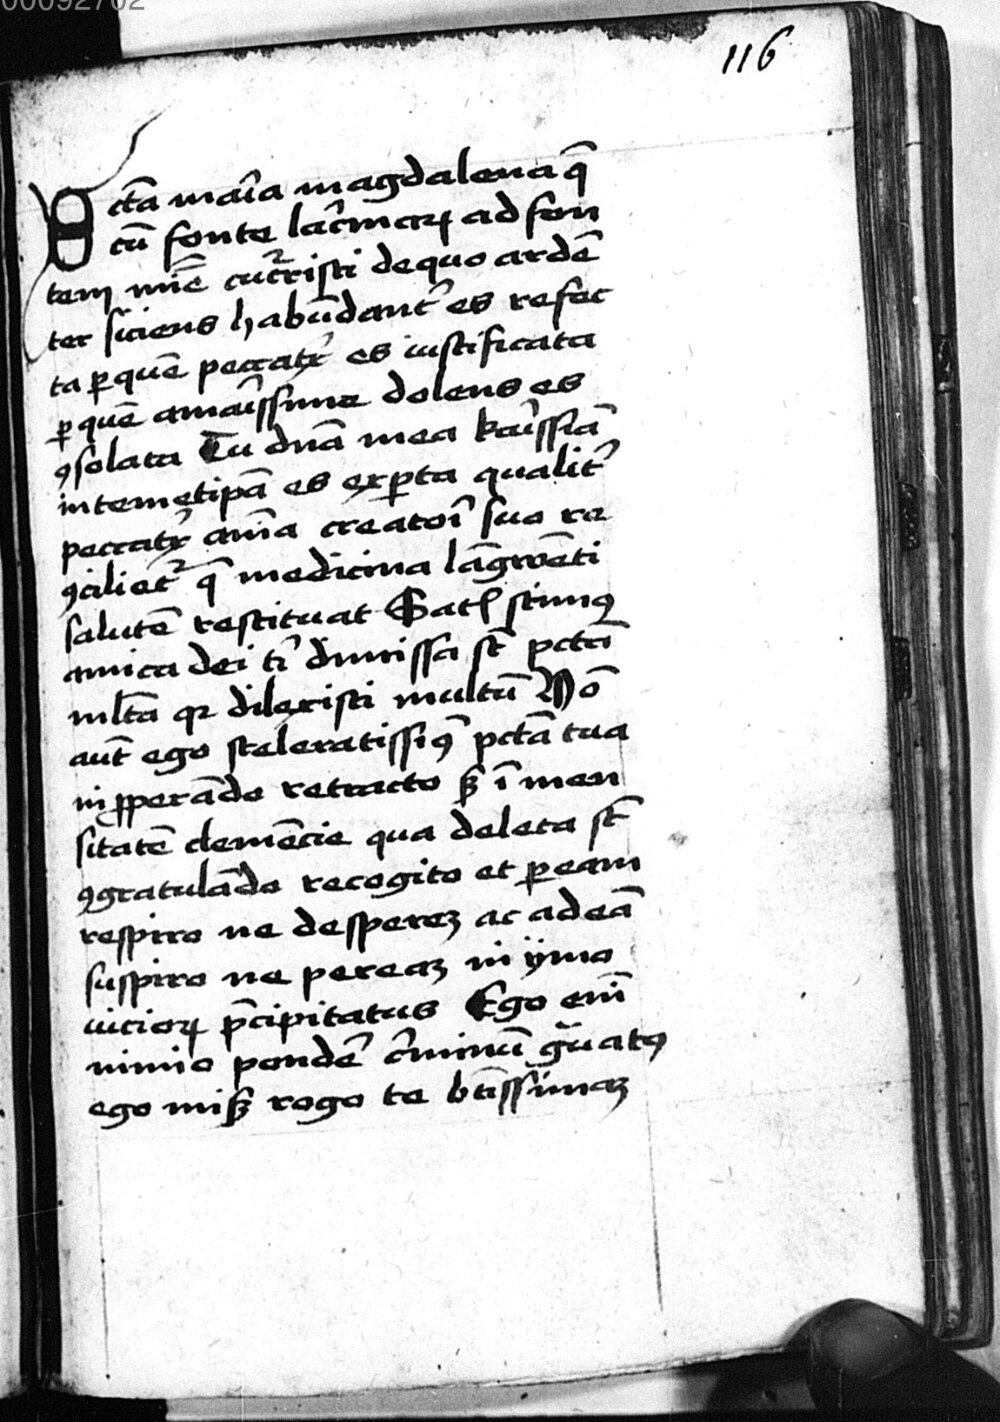 00092702
116
Sctā mar̄ia magdalena q̄
cū fonte lac̄rimarꝝ ad fon
tem mīe cucūrristi de quo ardē
ter siciens habūdant̄ es refec
ta ꝑ quē peccatr̄ es iustificata
ꝑ quē amar̄issime dolens es
ꝯsolata Tu dn̄a mea kar̄issīa
in temetipā es exꝑta qualit̄
peccatr̄ aīa creator̄i suo re
ꝯciliet̄ q̄ medicina lāgwēti
salutē restituat Sat scimꝰ
amica dei t̄i dimissa st̄ pctā
ml̄ta qr dilexisti multū Nō
aut̄ ego sceleratissiꝰ pctā tua
īꝓperādo retracto sꝫ īmen
sitatē clemēcie qua deleta st̄
ꝯgratulādo recogito et ꝑ eam
respiro ne despereꝫ ac ad eā
suspiro ne pereaꝫ in ymo
viciorꝝ p̄cipitatus Ego enī
nimio pondē c̄riminū ḡuatꝰ
ego misꝫ rogo te bt̄issimaꝫ